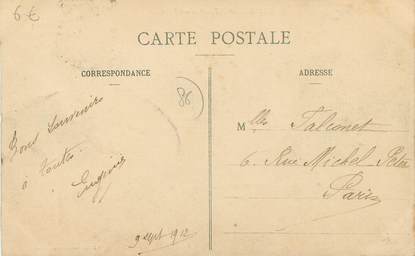 6€
CARTE POSTALE
CORRESPONDANCE
ADRESSE
86
Bons souvenirs
à toutes
Eugénie
9 Sept 1912
Mlle Falconet
6. Rue Michel Peter
Paris